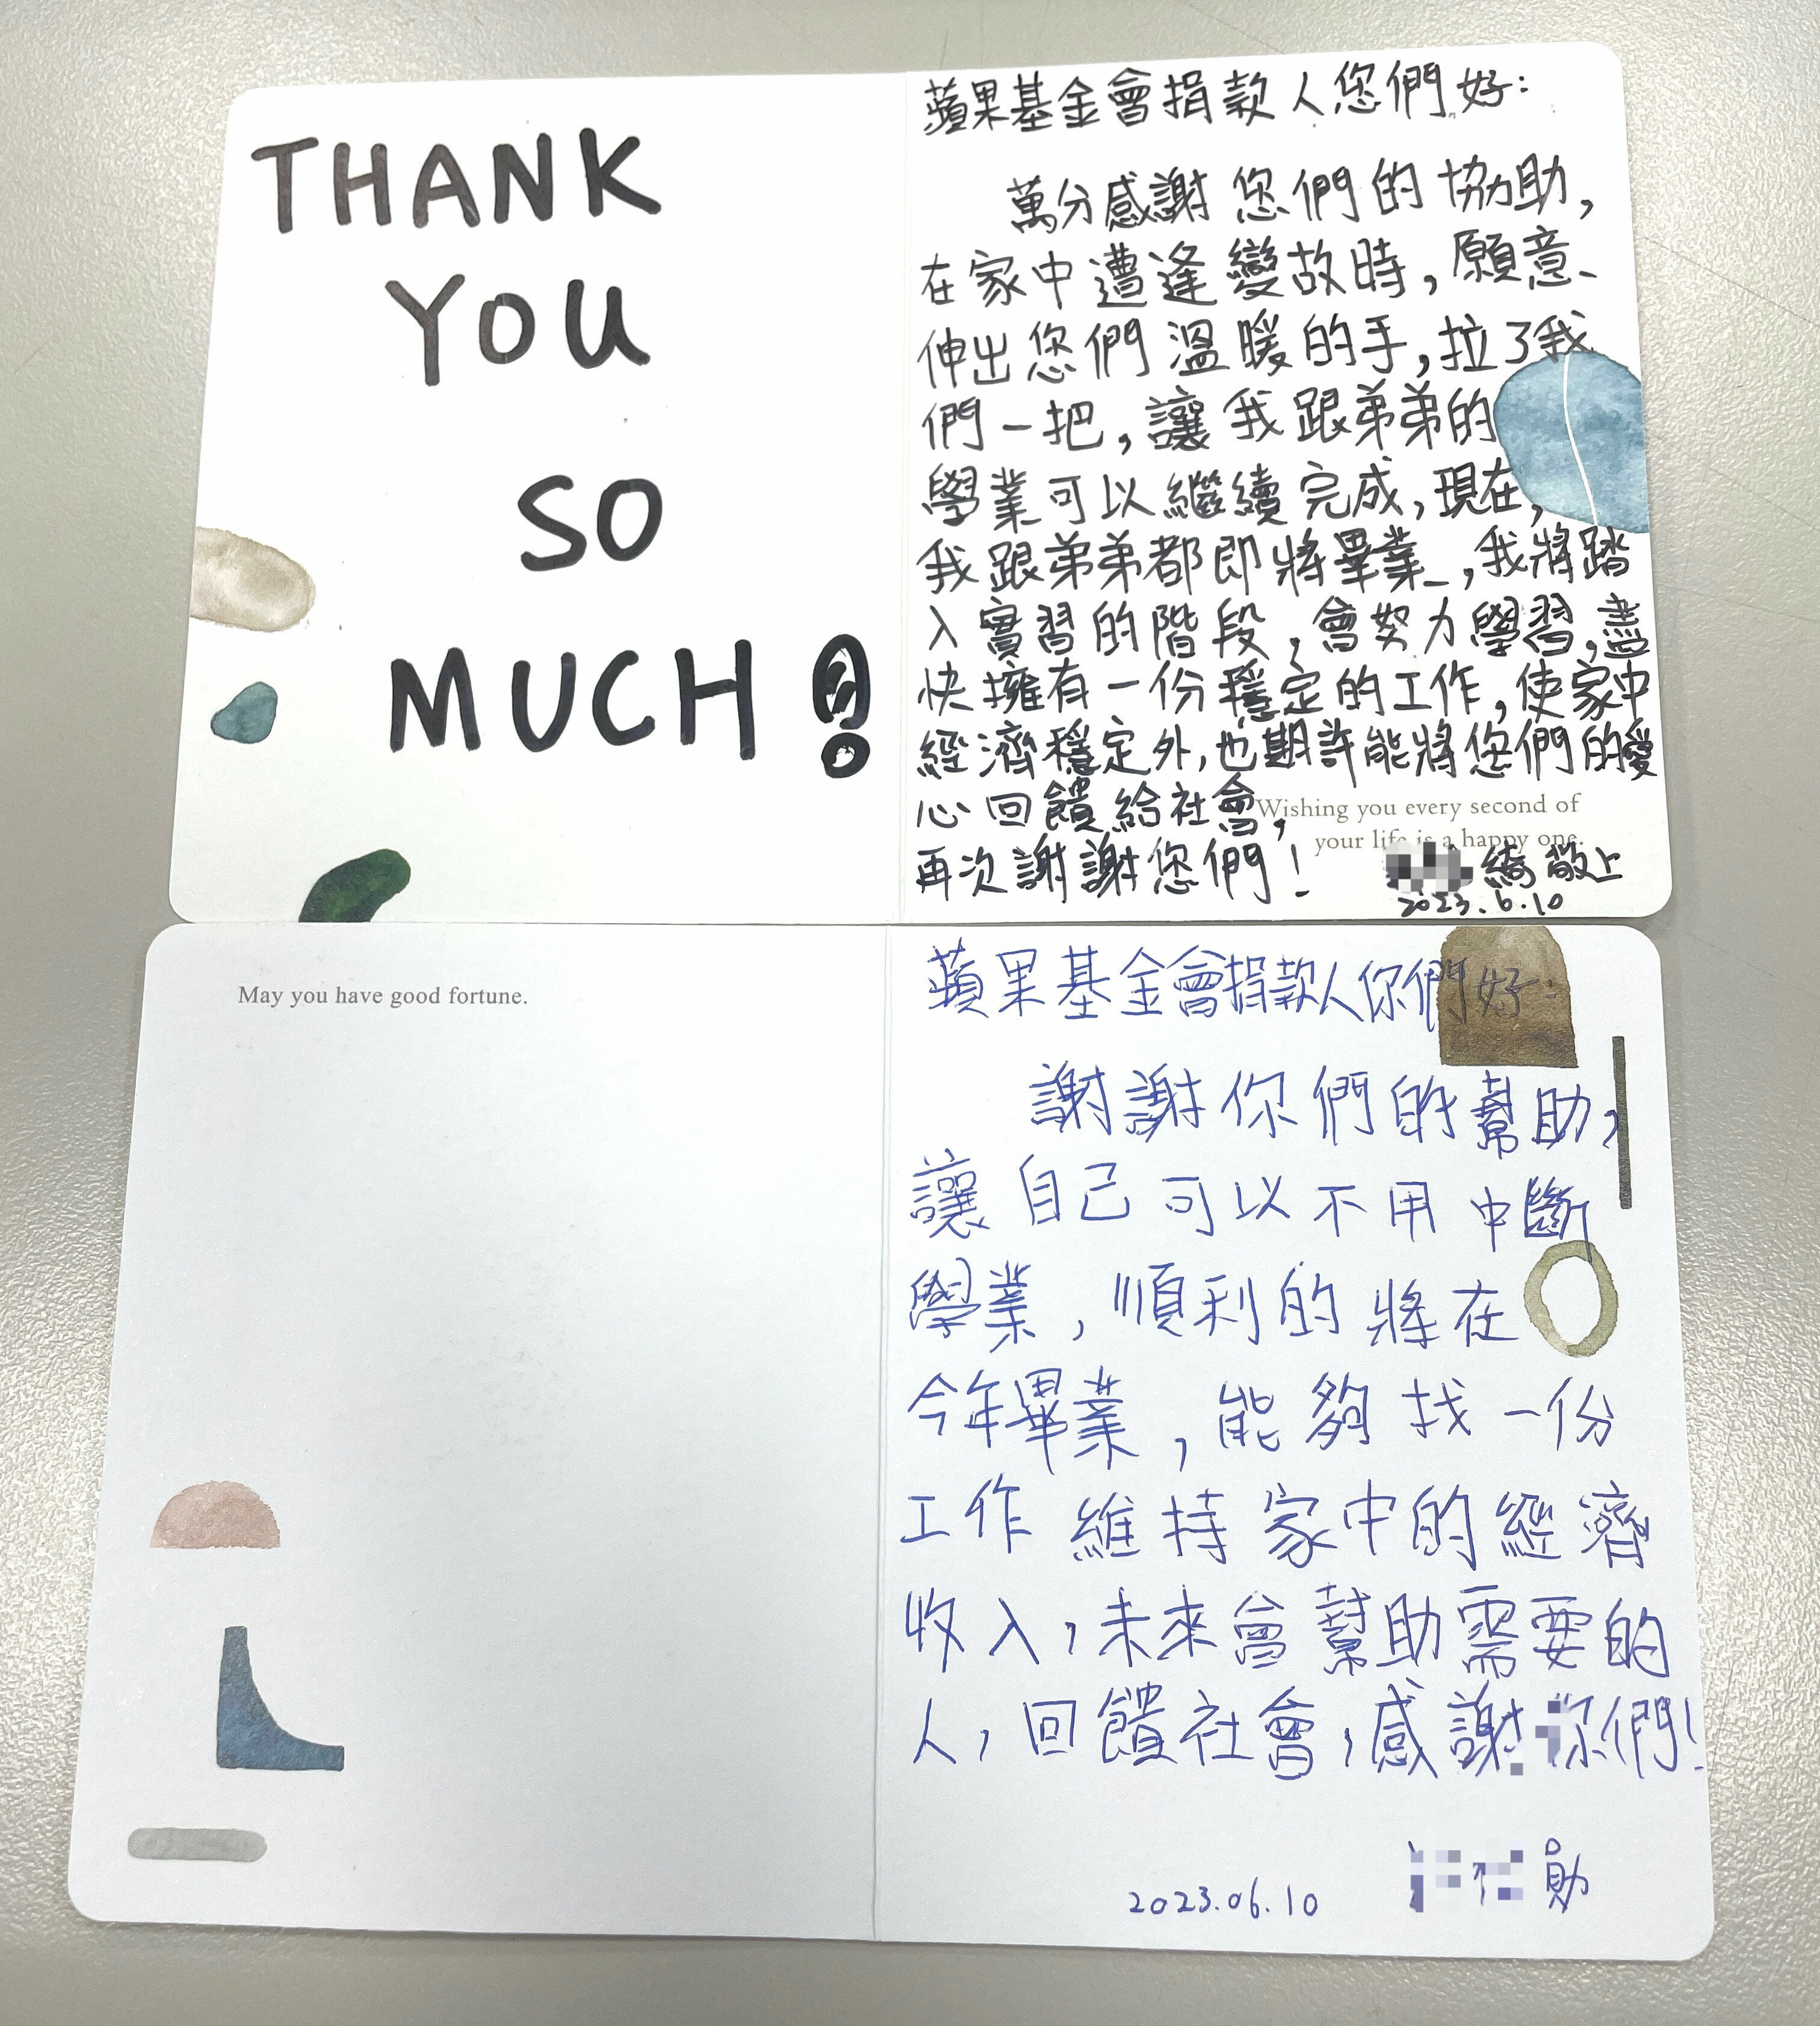 THANK
YOU
SO
MUCH!
蘋果基金會捐款人您們好：
萬分感謝您們的協助，
在家中遭逢變故時，願意
伸出您們溫暖的手，拉了我
們一把，讓我跟弟弟的
學業可以繼續完成，現在，
我跟弟弟都即將畢業，我將踏
入實習的階段，會努力學習，盡
快擁有一份穩定的工作，使家中
經濟穩定外，也期許能將您們的愛
心回饋給社會，
Wishing you every second of
your life is a happy one.
再次謝謝您們！
綺 敬上
2023.6.10
May you have good fortune.
蘋果基金會捐款人你們好：
謝謝你們的幫助，
讓自己可以不用中斷
學業，順利的將在
今年畢業，能夠找一份
工作維持家中的經濟
收入，未來會幫助需要的
人，回饋社會，感謝你們！
勛
2023.06.10